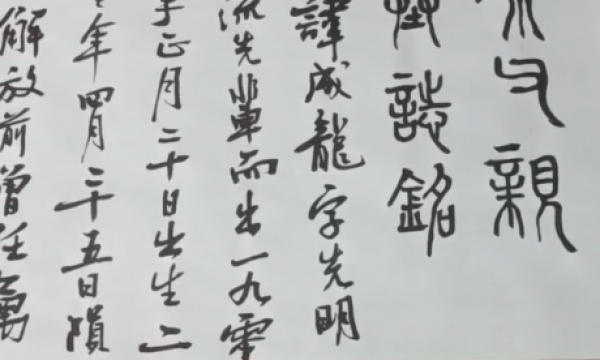 父親
誌銘
諱成龍字先明
流先輩而出一九零
正月二十日出生二
年四月二十五日隕
解放前曾任